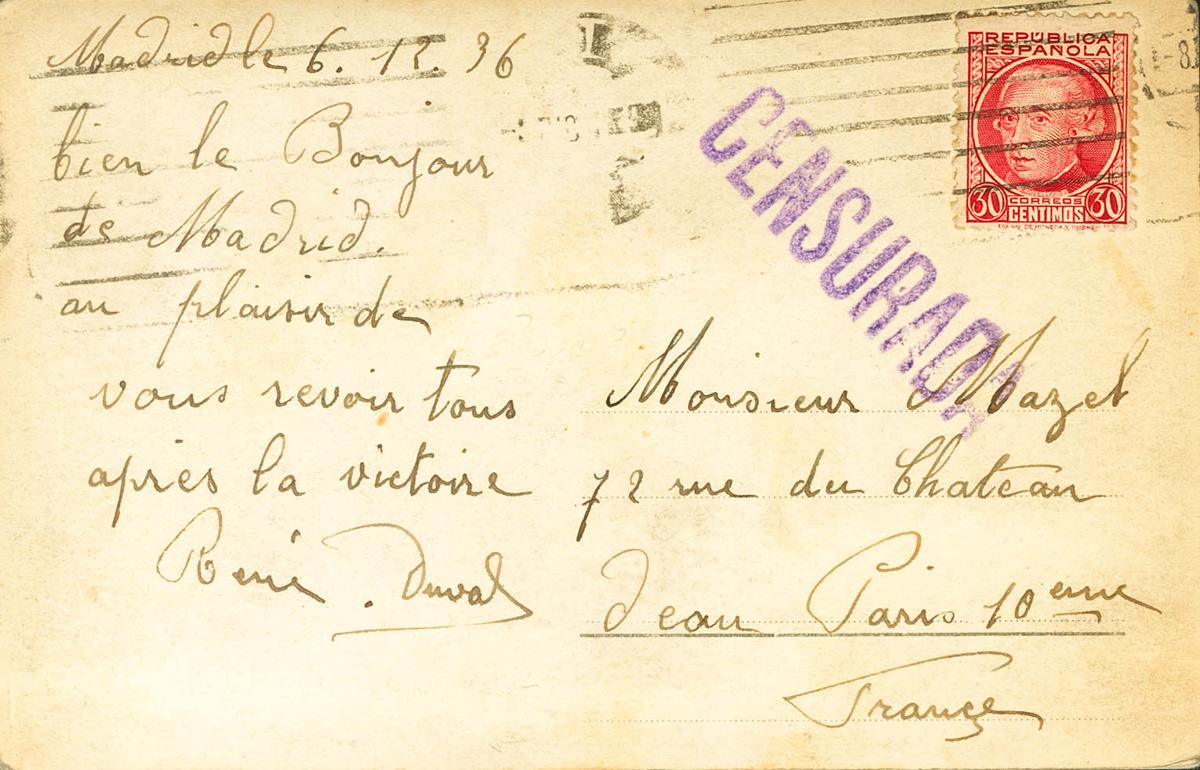 Madrid le 6. 12. 36
bien le Bonjour
de Madrid.
au plaisir de
vous revoir tous
après la victoire
René. Duval
REPÚBLICA
ESPAÑOLA
30 CORREOS 30
CENTIMOS
CENSURADA
Monsieur Mazel
72 rue du Chateau
d'eau Paris 10eme
France